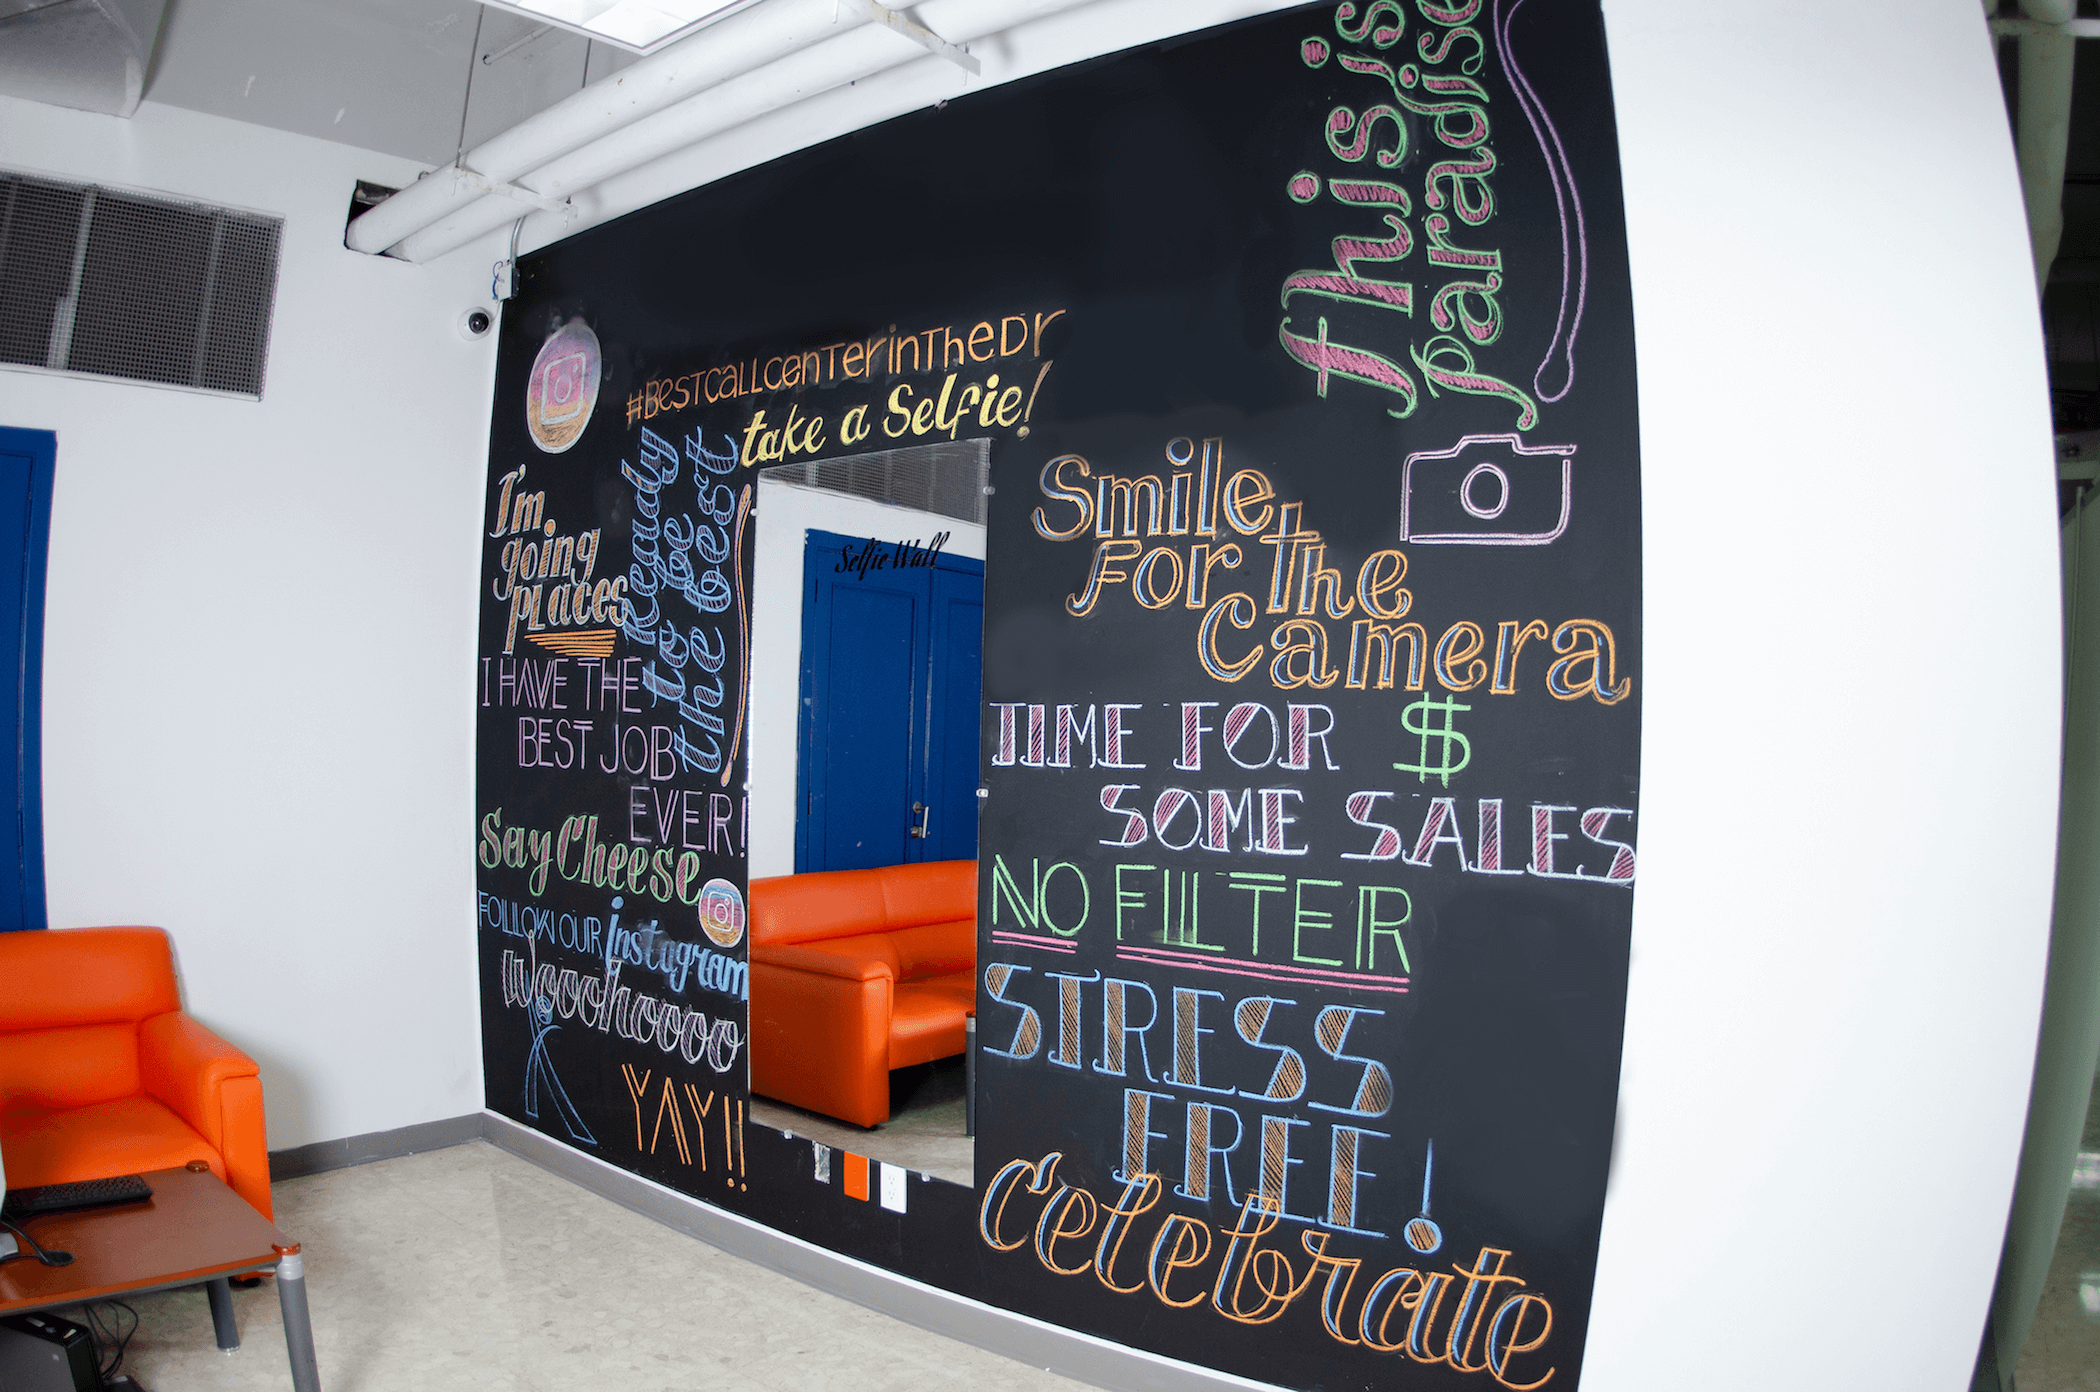 #BestCallCenterinTheDr
take a Selfie!
I'm
going
places
Ready
to be
the best
I HAVE THE
BEST JOB
EVER!
Say Cheese
FOLLOW OUR instagram
Wooohoooo
YAY!!
Selfie Wall
this is
paradise
Smile
For the
Camera
TIME FOR $
SOME SALES
NO FILTER
STRESS
FREE!
Celebrate